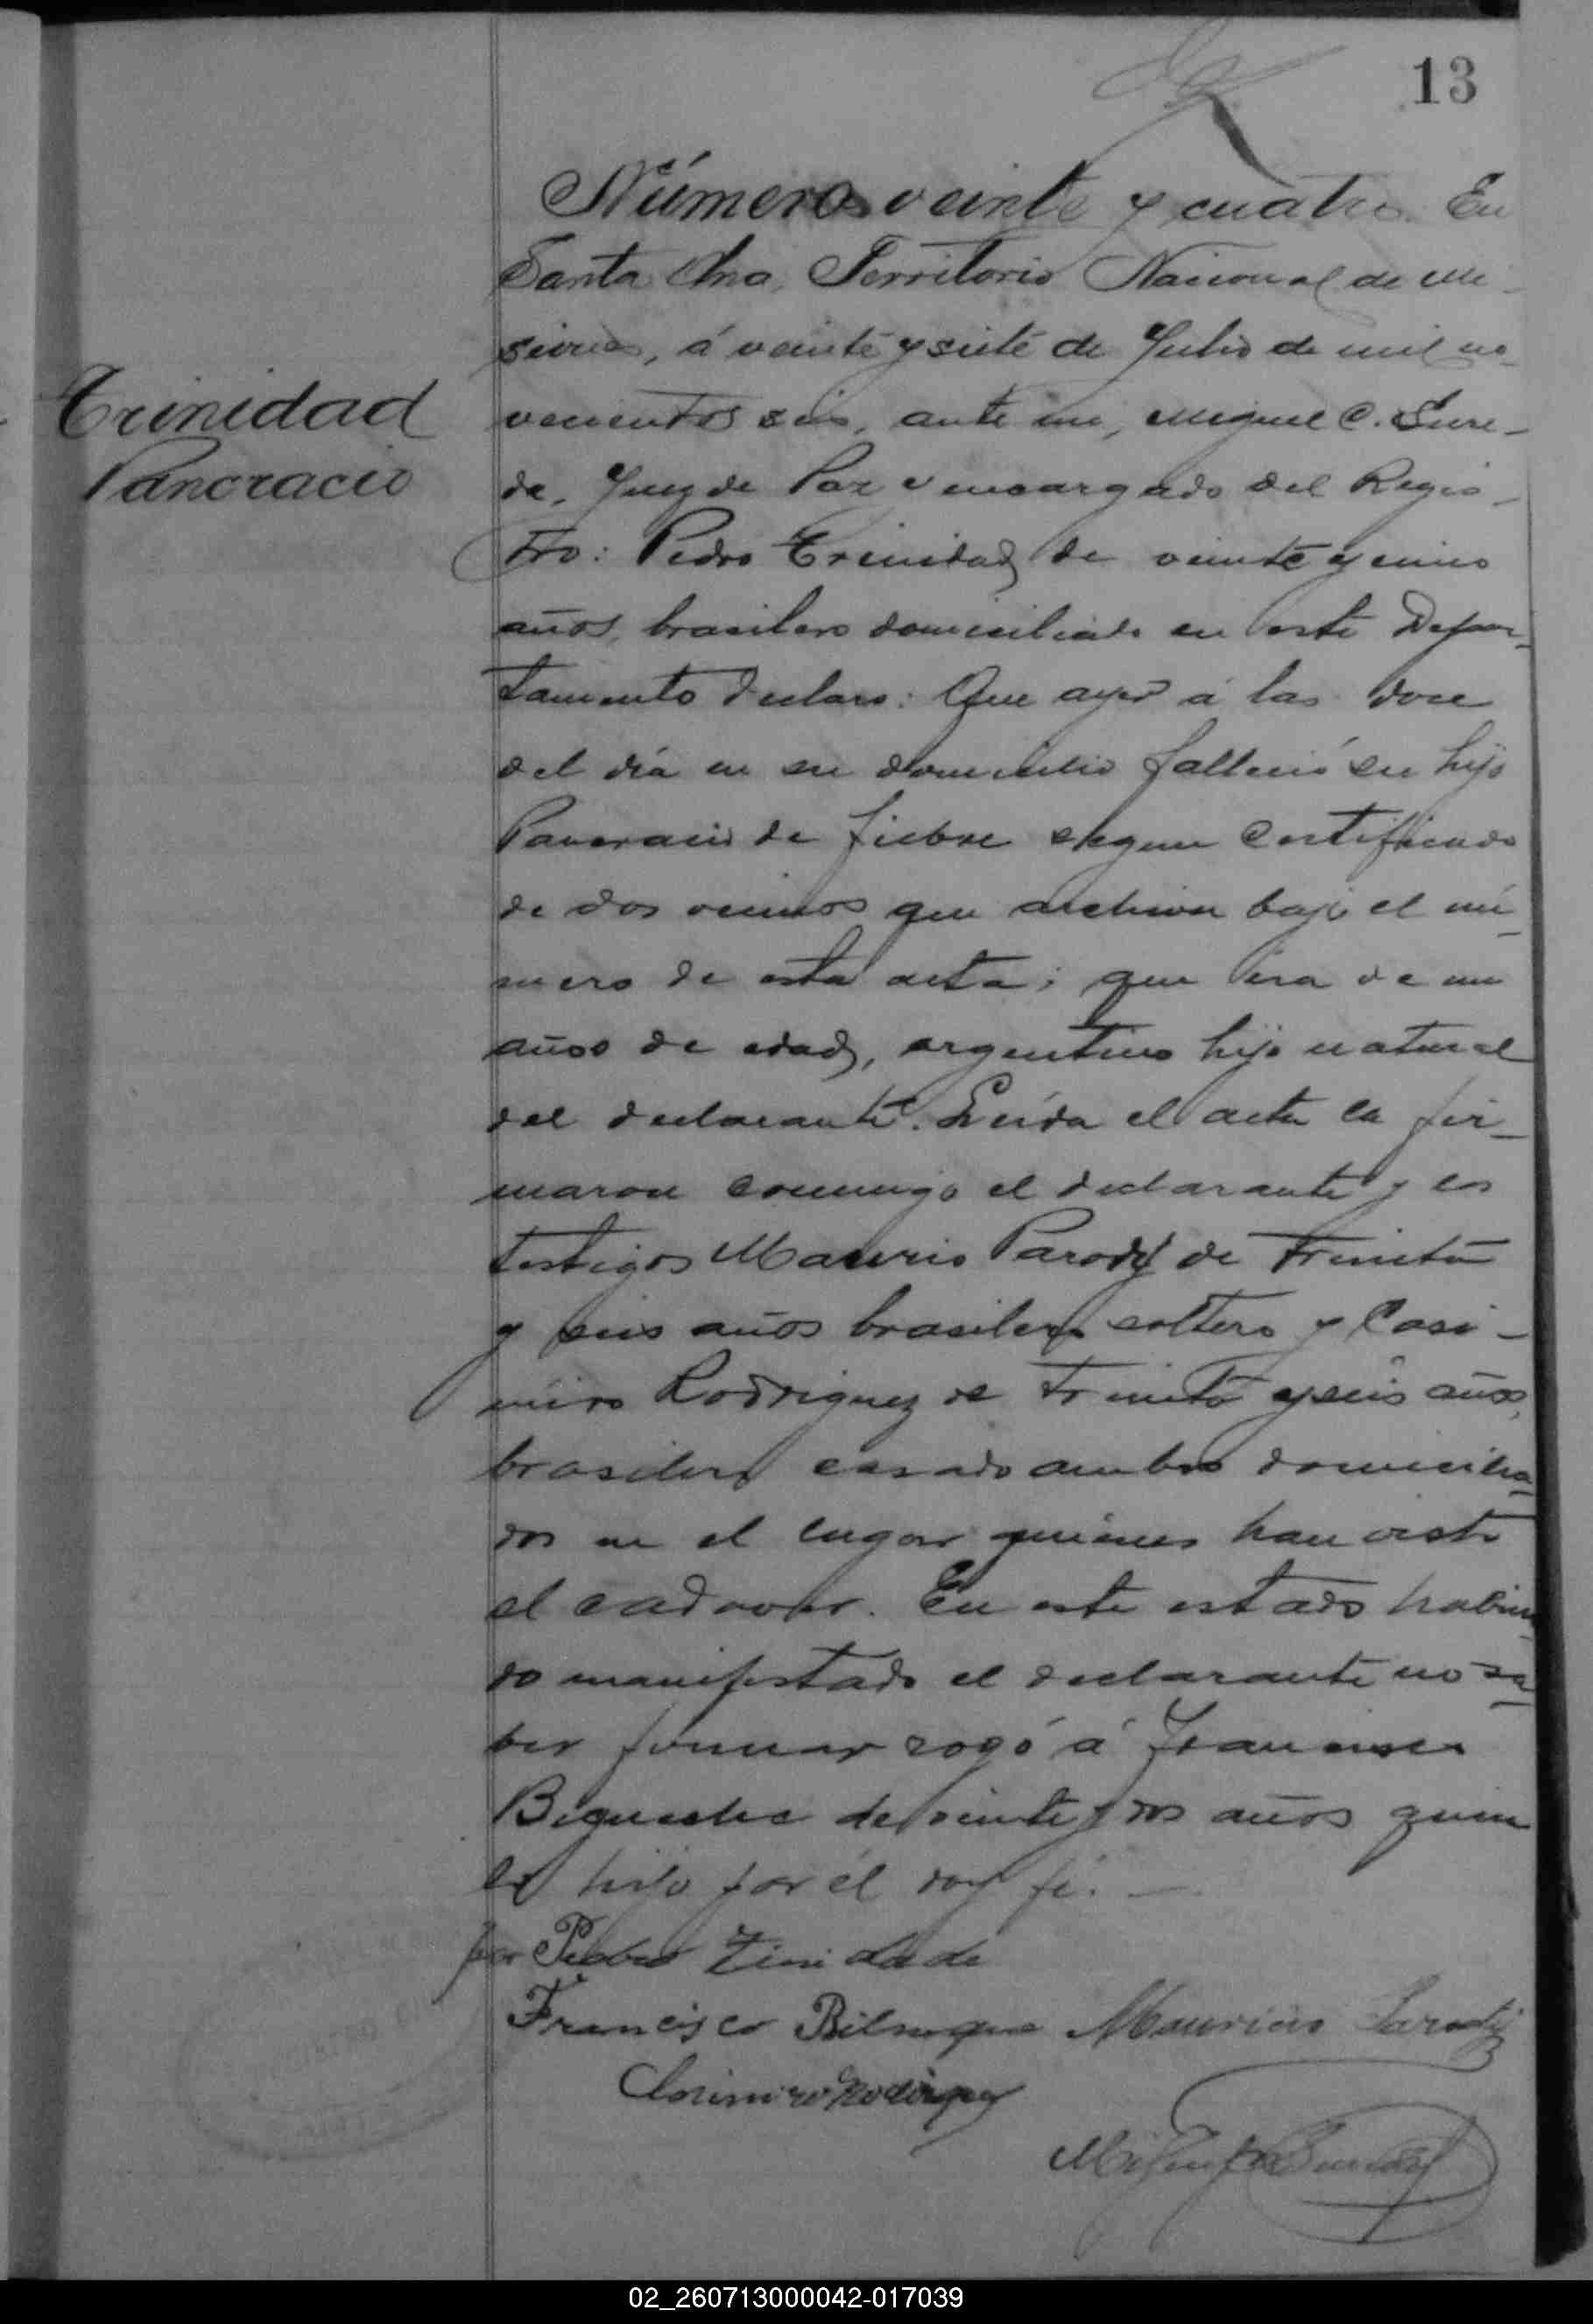 13
Número veinte y cuatro. En
Santa Ana, Territorio Nacional de Mi-
siones, á veinte y siete de Julio de mil no-
vecientos seis, ante mi, Miguel C. Sure-
da, Juez de Paz y encargado del Regis-
tro: Pedro Trinidad de veinte y cinco
años, brasilero domiciliado en este Depar-
tamento declaro: Que ayer á las doce
del día en su domicilio falleció su hijo
Pancracio de fiebre segun certificado
de dos vecinos que archivo bajo el nú-
mero de esta acta; que era de un
años de edad, argentino hijo natural
del declarante. Leída el acta la fir-
maron conmigo el declarante y los
testigos Mauricio Parody de treinta
y seis años brasilero soltero y Casi-
miro Rodriguez de treinta y seis años,
brasilero casado ambos domicilia-
dos en el lugar quienes han visto
el cadaver. En este estado habien-
do manifestado el declarante no sa-
ber firmar rogó á Francisco
de veinte y dos años quien
lo hizo por él doy fé. —
por Pedro Trinidade
Francisco Mauricio Parody
Casimiro Rodriguez
Miguel C Sureda
Trinidad
Pancracio
02_260713000042-017039